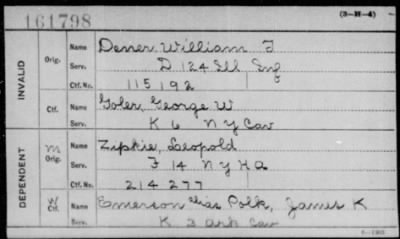 161798
(3-M-4)
INVALID
Orig.
Name Dener, William F
Serv. D 124 Ill Inf
Ctf. No. 115192
Ctf.
Name Goler, George W
Serv. K 6 N Y Cav
DEPENDENT
M
Orig.
Name Zipkie, Leopold
Serv. F 14 N Y H A
Ctf. No. 214277
W
Ctf.
Name Emerson alias Polk, James K
Serv. K 3 Ark Cav